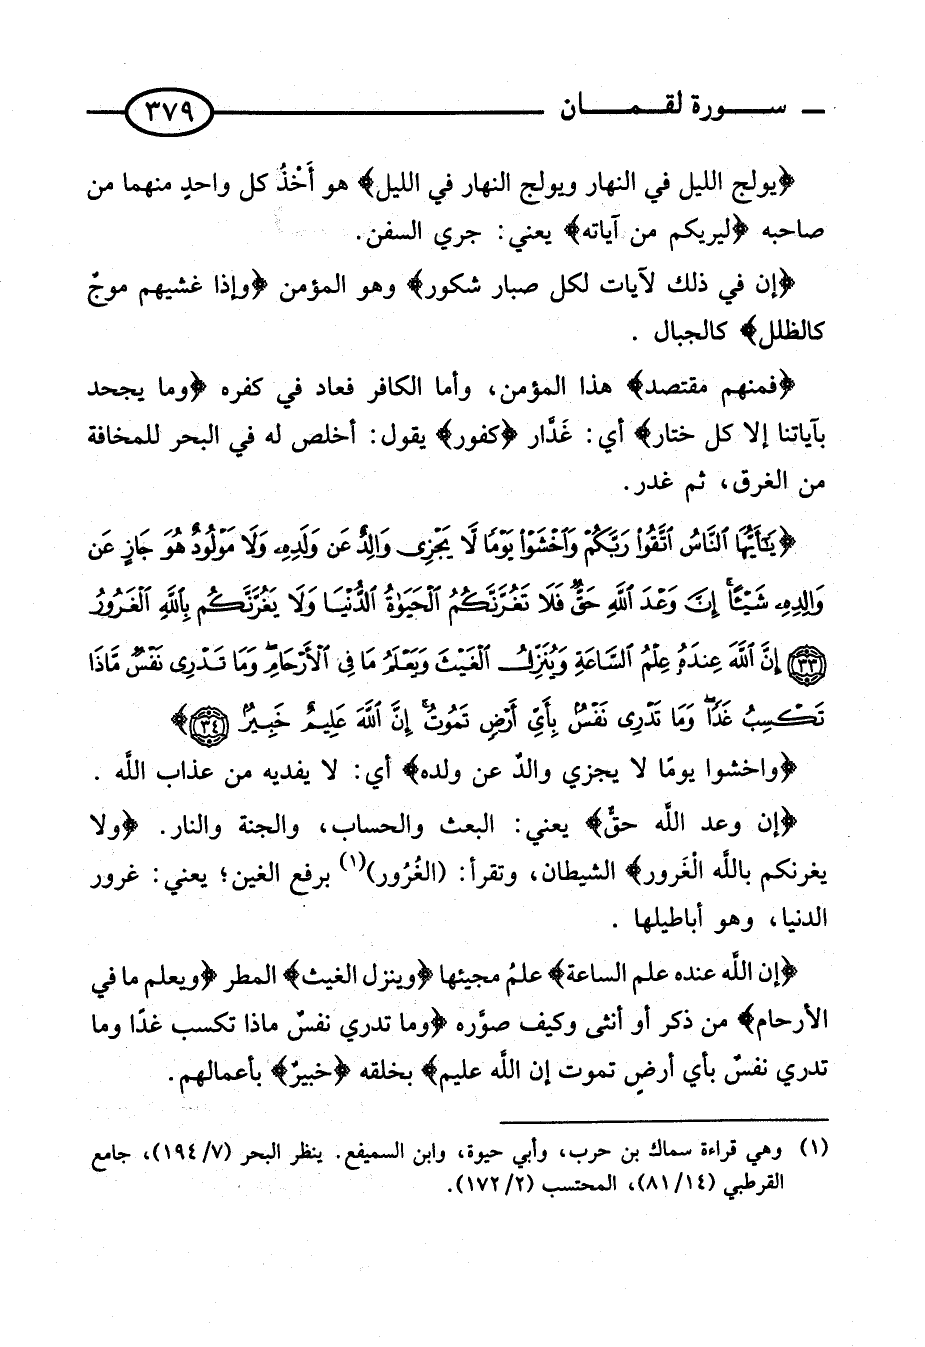 ـ ســـورة لقـمـــان ٣٧٩
﴿يولج الليل في النهار ويولج النهار في الليل﴾ هو أَخْذُ كل واحدٍ منهما من
صاحبه ﴿ليريكم من آياته﴾ يعني: جري السفن.
﴿إن في ذلك لآيات لكل صبار شكور﴾ وهو المؤمن ﴿وإذا غشيهم موجٌ
كالظلل﴾ كالجبال .
﴿فمنهم مقتصد﴾ هذا المؤمن، وأما الكافر فعاد في كفره ﴿وما يجحد
بآياتنا إلا كل ختار﴾ أي: غَدَّار ﴿كفور﴾ يقول: أخلص له في البحر للمخافة
من الغرق، ثم غدر.
﴿يَٰٓأَيُّهَا ٱلنَّاسُ ٱتَّقُوا۟ رَبَّكُمْ وَٱخْشَوْا۟ يَوْمًا لَّا يَجْزِى وَالِدٌ عَن وَلَدِهِۦ وَلَا مَوْلُودٌ هُوَ جَازٍ عَن
وَالِدِهِۦ شَيْـًٔا ۚ إِنَّ وَعْدَ ٱللَّهِ حَقٌّ ۖ فَلَا تَغُرَّنَّكُمُ ٱلْحَيَوٰةُ ٱلدُّنْيَا وَلَا يَغُرَّنَّكُم بِٱللَّهِ ٱلْغَرُورُ
﴿٣٣﴾ إِنَّ ٱللَّهَ عِندَهُۥ عِلْمُ ٱلسَّاعَةِ وَيُنَزِّلُ ٱلْغَيْثَ وَيَعْلَمُ مَا فِى ٱلْأَرْحَامِ ۖ وَمَا تَدْرِى نَفْسٌ مَّاذَا
تَكْسِبُ غَدًا ۖ وَمَا تَدْرِى نَفْسٌۢ بِأَىِّ أَرْضٍ تَمُوتُ ۚ إِنَّ ٱللَّهَ عَلِيمٌ خَبِيرٌۢ ﴿٣٤﴾﴾
﴿واخشوا يومًا لا يجزي والدٌ عن ولده﴾ أي: لا يفديه من عذاب اللَّه .
﴿إن وعد اللَّه حقٌّ﴾ يعني: البعث والحساب، والجنة والنار. ﴿ولا
يغرنكم باللَّه الْغَرور﴾ الشيطان، وتقرأ: (الغُرُور)(١) برفع الغين؛ يعني: غرور
الدنيا، وهو أباطيلها .
﴿إن اللَّه عنده علم الساعة﴾ علمُ مجيئها ﴿وينزل الغيث﴾ المطر ﴿ويعلم ما في
الأرحام﴾ من ذكر أو أنثى وكيف صوَّره ﴿وما تدري نفسٌ ماذا تكسب غدًا وما
تدري نفسٌ بأي أرضٍ تموت إن اللَّه عليم﴾ بخلقه ﴿خبيرٌ﴾ بأعمالهم.
(١) وهي قراءة سماك بن حرب، وأبي حيوة، وابن السميفع. ينظر البحر (٧/ ١٩٤)، جامع
القرطبي (١٤/ ٨١)، المحتسب (٢/ ١٧٢).